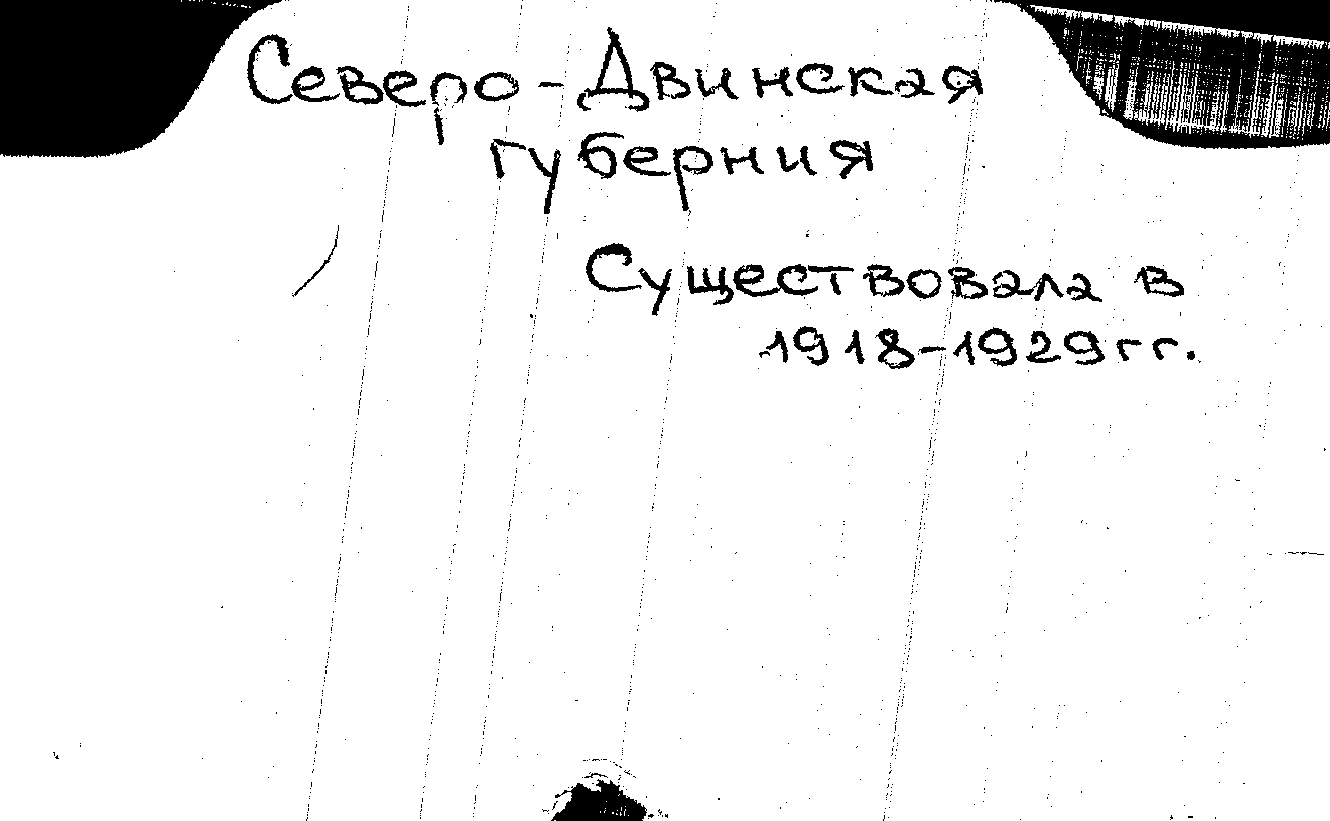 Северо-Двинская
губерния
Существовала в
1918-1929 гг.